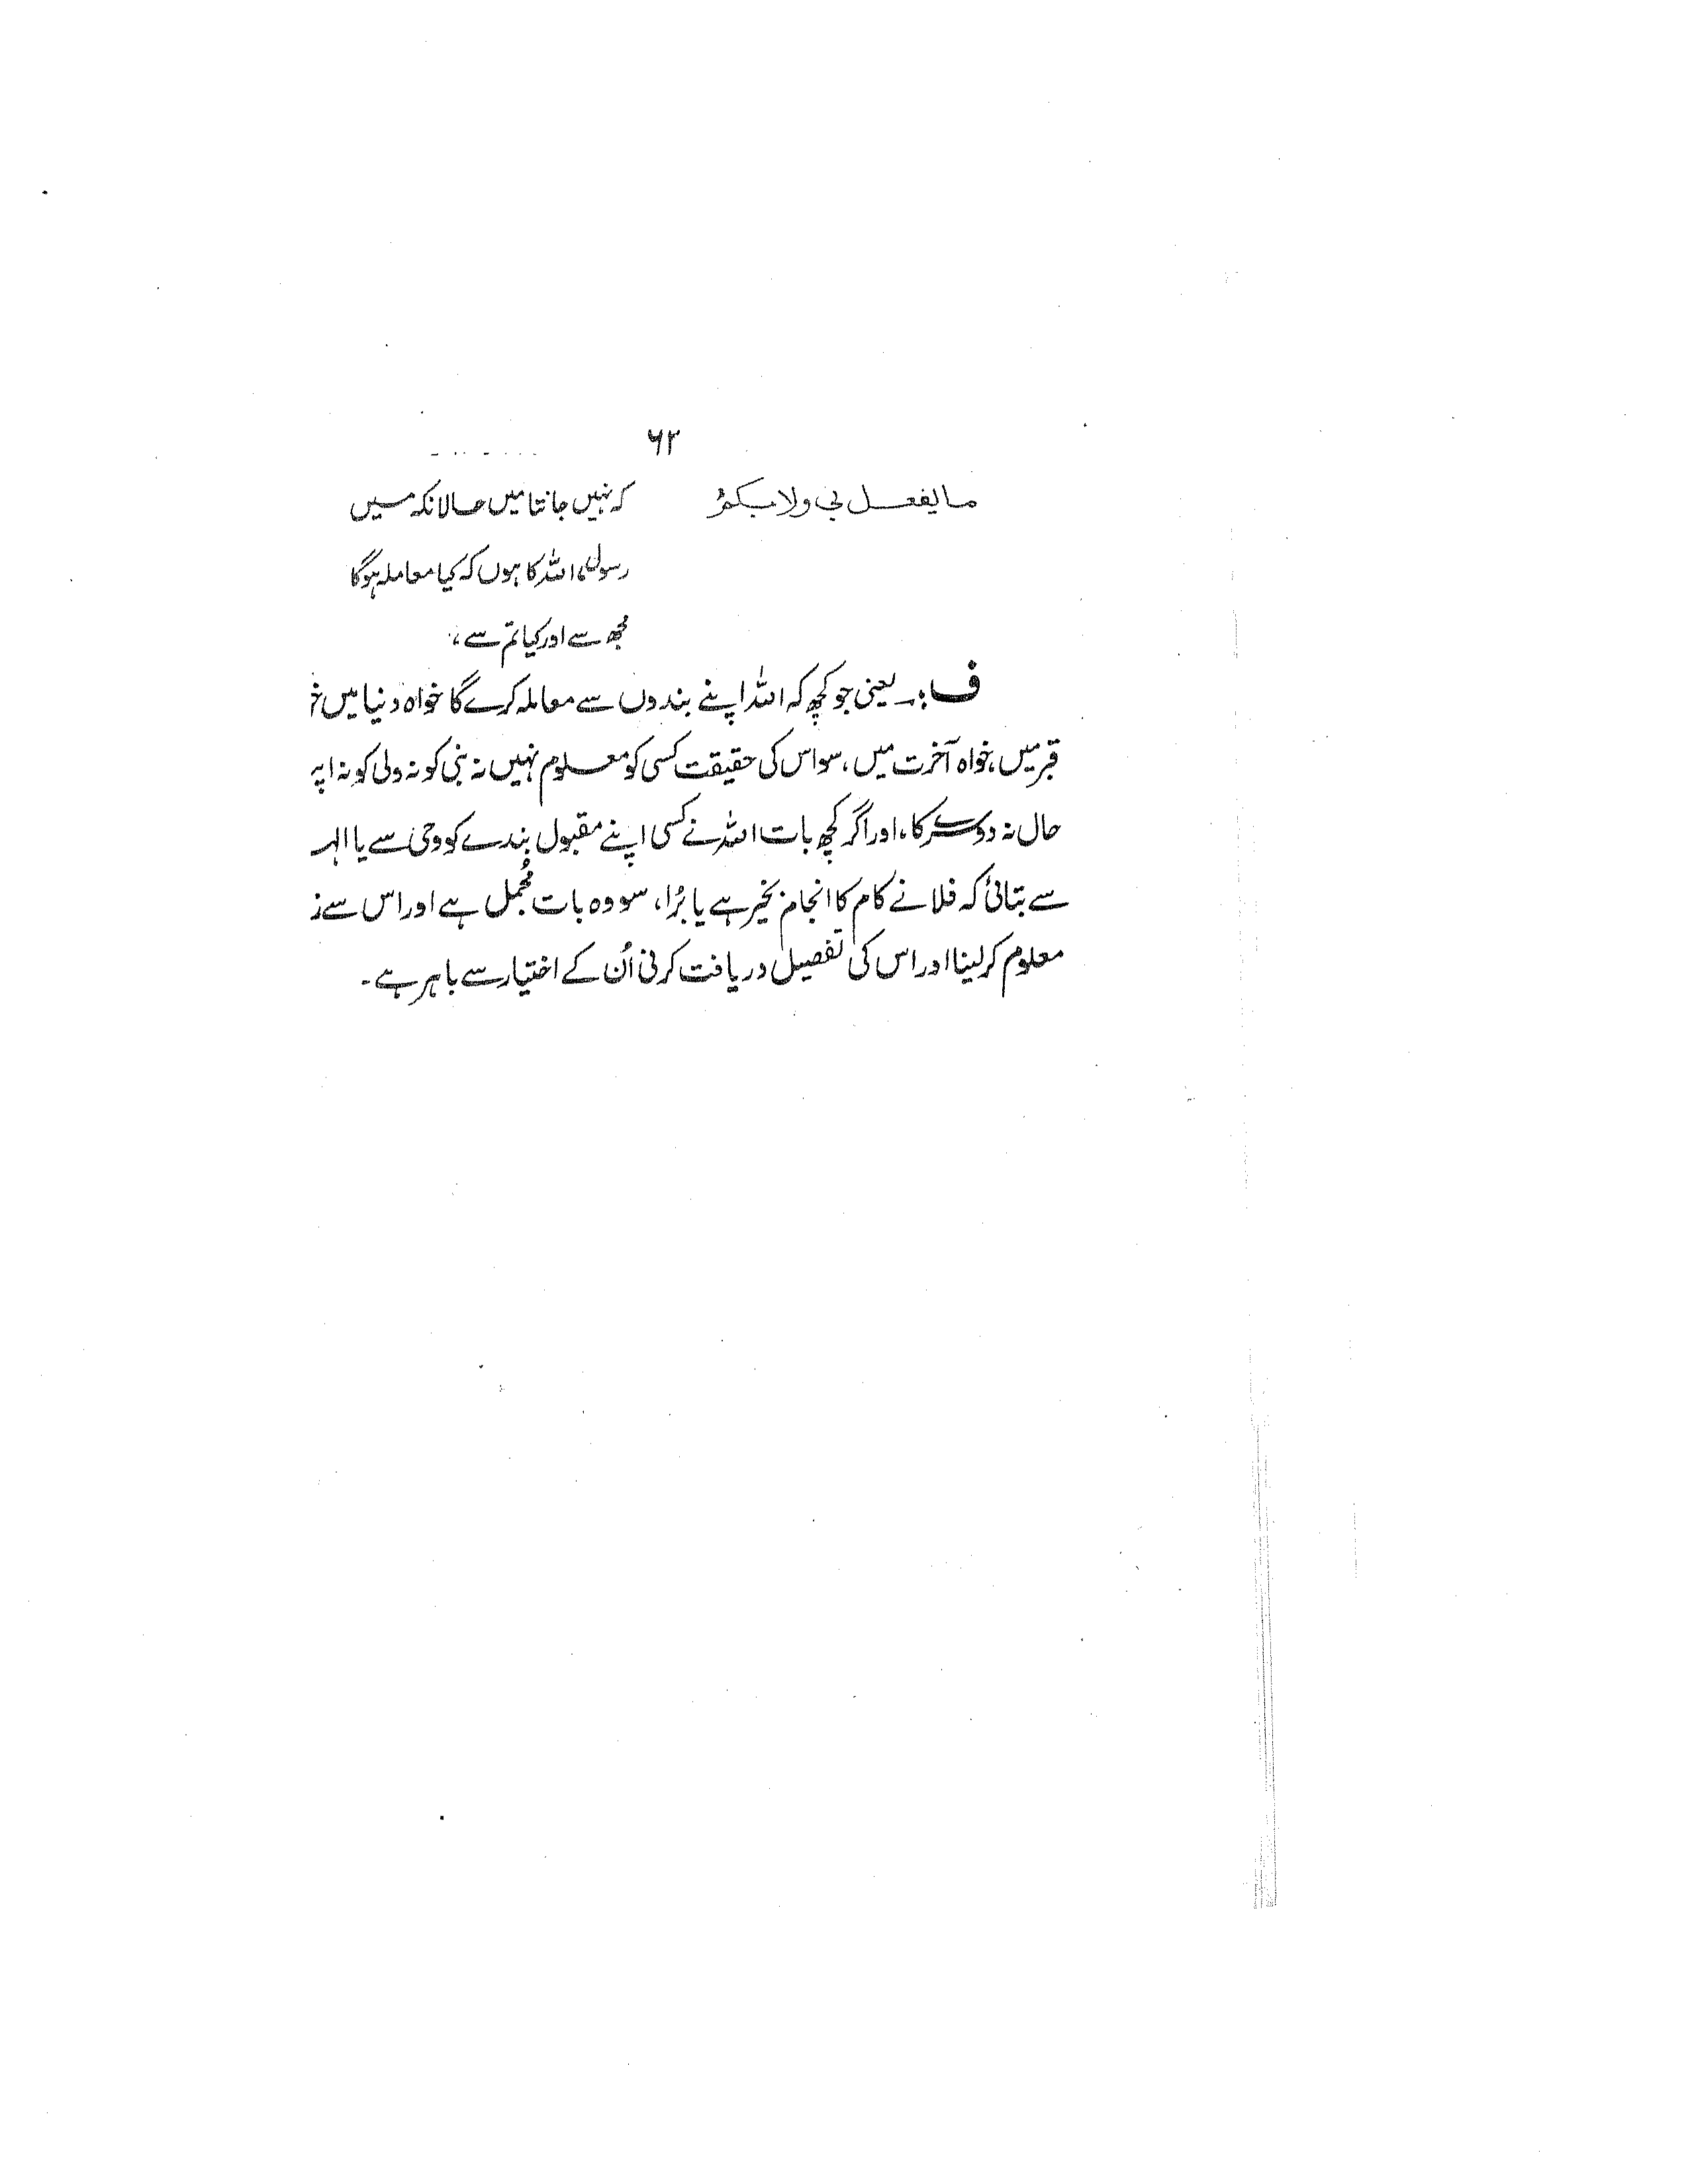 ۶۲
ما یفعل بی ولا بکم کہ نہیں جانتا میں حالانکہ میں
رسول اللہ کا ہوں کہ کیا معاملہ ہوگا
مجھ سے اور کیا تم سے،
ف:۔ یعنی جو کچھ کہ اللہ اپنے بندوں سے معاملہ کرے گا خواہ دنیا میں
قبر میں، خواہ آخرت میں، سو اس کی حقیقت کسی کو معلوم نہیں نہ نبی کو نہ ولی کو نہ
حال نہ دوسرے کا، اور اگر کچھ بات اللہ نے کسی اپنے مقبول بندے کو وحی سے یا
سے بتائی کہ فلانے کام کا انجام بخیر ہے یا بُرا، سو وہ بات مُجمل ہے اور اس سے
معلوم کر لینا اور اس کی تفصیل دریافت کرنی اُن کے اختیار سے باہر ہے۔